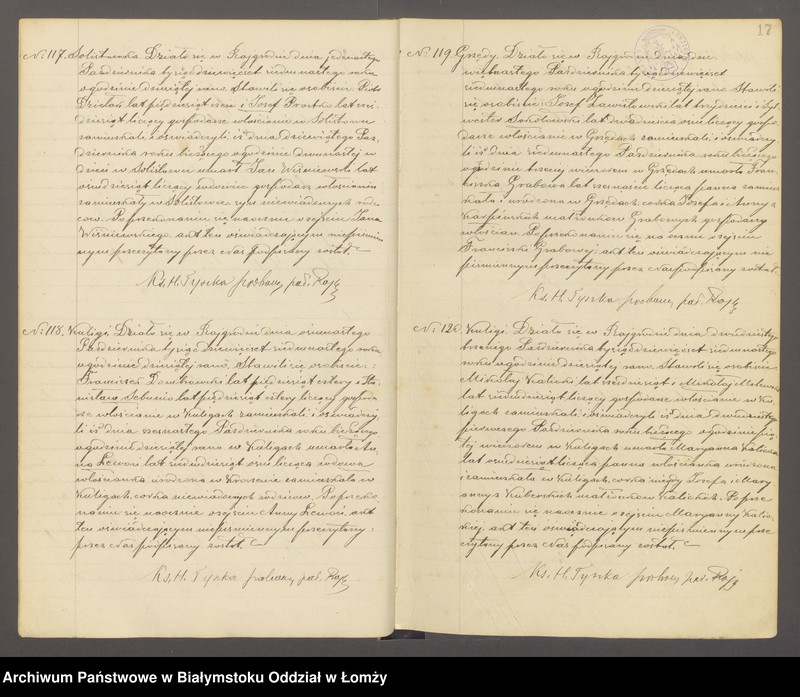 N. 117. Solistówka. Działo się w Rajgrodzie dnia jedenastego
Października tysiąc dziewięćset siedmnastego roku
o godzinie dziesiątej rano. Stawili się osobiście: Piotr
lat pięćdziesiąt ośm i Józef
liczący gospodarze włościanie w Solistówce
zamieszkali i oświadczyli: iż dnia dziewiątego Paź-
dziernika roku bieżącego o godzinie dwunastej w
dzień w Solistówce umarł Jan Wiśniewski lat
ośmdziesiąt liczący wdowiec gospodarz włościanin
zamieszkały w Solistówce syn niewiadomych rodzi-
ców. Po przekonaniu się naocznie o zejściu Jana
Wiśniewskiego akt ten oświadczającym niepiśmien-
nym przeczytany przez Nas podpisany został.
Ks. H. Tyszka proboszcz par. Rajg.
N. 118. Kuligi. Działo się w Rajgrodzie dnia ośmnastego
Października tysiąc dziewięćset siedmnastego roku
o godzinie dziesiątej rano. Stawili się osobiście:
Franciszek Dombrowski lat pięćdziesiąt cztery i Sta-
nisław lat pięćdziesiąt cztery liczący gospoda-
rze włościanie w Kuligach zamieszkali i oświadczy-
li iż dnia szesnastego Października roku bieżącego
o godzinie dziesiątej rano w Kuligach umarła An-
na lat siedmdziesiąt ośm licząca wdowa
włościanka urodzona w zamieszkała w
Kuligach, córka niewiadomych rodziców. Po przeko-
naniu się naocznie o zejściu Anny akt
ten oświadczającym niepiśmiennym przeczytany
przez Nas podpisany został.
Ks. H. Tyszka proboszcz par. Rajg.
17
N. 119. Grzędy. Działo się w Rajgrodzie dnia
Października tysiąc dziewięćset
siedmnastego roku o godzinie dziesiątej rano. Stawili
się osobiście: Józef lat trzydzieści i Syl-
wester Sokołowski lat dwadzieścia ośm liczący gospo-
darze włościanie w Grzędach zamieszkali i oświadczy-
li iż dnia siedmnastego Października roku bieżącego
o godzinie trzeciej wieczorem w Grzędach umarła Fran-
ciszka Grabowa lat szesnaście licząca panna zamiesz-
kała i urodzona w Grzędach córka Józefa i Anny z
Karpieńskich małżonków Grabowych gospodarzy
włościan. Po przekonaniu się naocznie o zejściu
Franciszki Grabowej akt ten oświadczającym nie-
piśmiennym przeczytany przez Nas podpisany został.
Ks. H. Tyszka proboszcz par. Rajg.
N. 120. Kuligi. Działo się w Rajgrodzie dnia dwudziestego
trzeciego Października tysiąc dziewięćset siedmnastego
roku o godzinie dziesiątej rano. Stawili się osobiście
Mikołaj Kalicki lat sześćdziesiąt i Mikołaj
lat siedmdziesiąt liczący gospodarze włościanie w Ku-
ligach zamieszkali i oświadczyli iż dnia dwudziestego
pierwszego Października roku bieżącego o godzinie pią-
tej wieczorem w Kuligach umarła Maryanna Kalicka
lat ośmdziesiąt licząca panna włościanka urodzona
i zamieszkała w Kuligach, córka niegdy Józefa i Mary-
anny z małżonków Kalickich. Po prze-
konaniu się naocznie o zejściu Maryanny Kalic-
kiej akt ten oświadczającym niepiśmiennym prze-
czytany przez Nas podpisany został.
Ks. H. Tyszka proboszcz par. Rajg.
Archiwum Państwowe w Białymstoku Oddział w Łomży